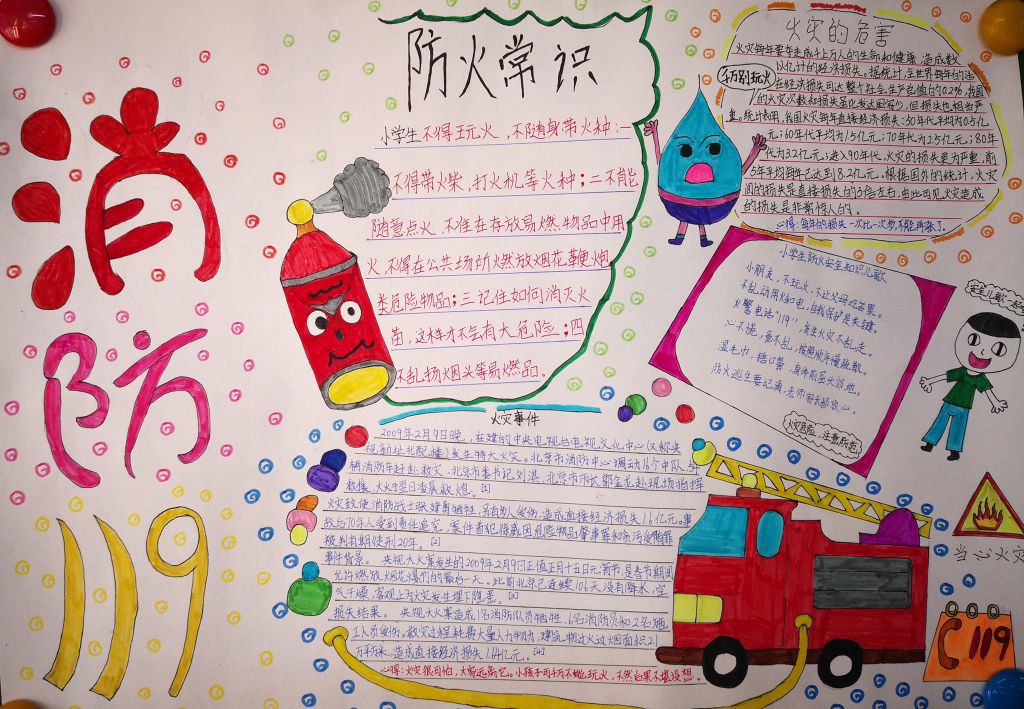 消
防
119
防火常识
小学生不得玩火,不随身带火种:一
不得带火柴,打火机等火种;二不能
随意点火,不准在存放易燃物品中用
火,不得在公共场所燃放烟花鞭炮
类危险物品;三记住如何消灭火
苗,这样才不会有大危险;四
不乱扔烟头等易燃品。
火灾的危害
火灾每年要夺走成千上万人的生命和健康,造成数
以亿计的经济损失。据统计,全世界每年的
在经济损失可达整个社会生产总值的0.2%,我国
的火灾次数和损失虽比发达国家少,但损失也相当严
重,统计表明,我国火灾每年直接经济损失:50年代平均为0.5亿
元;60年代平均为1.5亿元;70年代为2.5亿元;80年
代为3.2亿元;进入90年代,火灾的损失更为严重,前
5年平均每年已达到8.2亿元。根据国外的统计,火灾
间的损失是直接损失的3倍左右,由此可见火灾造成
的损失是非常惊人的。
心得:每年的损失一次比一次多,不能再涨了。
千万别玩火
小学生防火安全知识儿歌
小朋友,不玩火,不让父母吃苦果。
不乱动用煤和电,自我保护是关键。
火警电话“119”,发生火灾不乱走。
心不慌,意不乱,按照顺序慢疏散。
湿毛巾,捂口鼻,身体前屈允邻地。
防火逃生要记清,老师家长都放心。
火灾危险,注意防范
安全儿歌
火灾事件
2009年2月9日晚,在建的中央电视台电视文化中心(又称央
视新址北配楼)发生特大火灾。北京市消防中心调动16个中队,54
辆消防车赶赴救灾,北京市委书记刘淇、北京市市长郭金龙赴现场指挥
救援,大火于翌日凌晨救熄。[1]
火灾致使消防战士张建勇牺牲,另有8人受伤,造成直接经济损失1.6亿元。事
故后70年人受到责任追究。案件首犯徐威因危险物品肇事罪和贪污受贿罪
被判有期徒刑20年。[2]
事件背景。央视大火案发生的2009年2月9日正值正月十五日元宵节,是春节期间
允许燃放烟花爆竹的最后一天。此前北京已连续106天没有降水,空
气干燥,客观上为火灾发生埋下隐患。
损失结果。央视大火案造成1名消防队员牺牲,6名消防员和2名施
工人员受伤。救火过程耗费大量人力物力,建筑物过火过烟面积2.1
万平方米,造成直接经济损失1.64亿元。[4]
心得:火灾很可怕,大家远离它。小孩子可千万不能玩火,不然后果不堪设想。
当心火灾
119